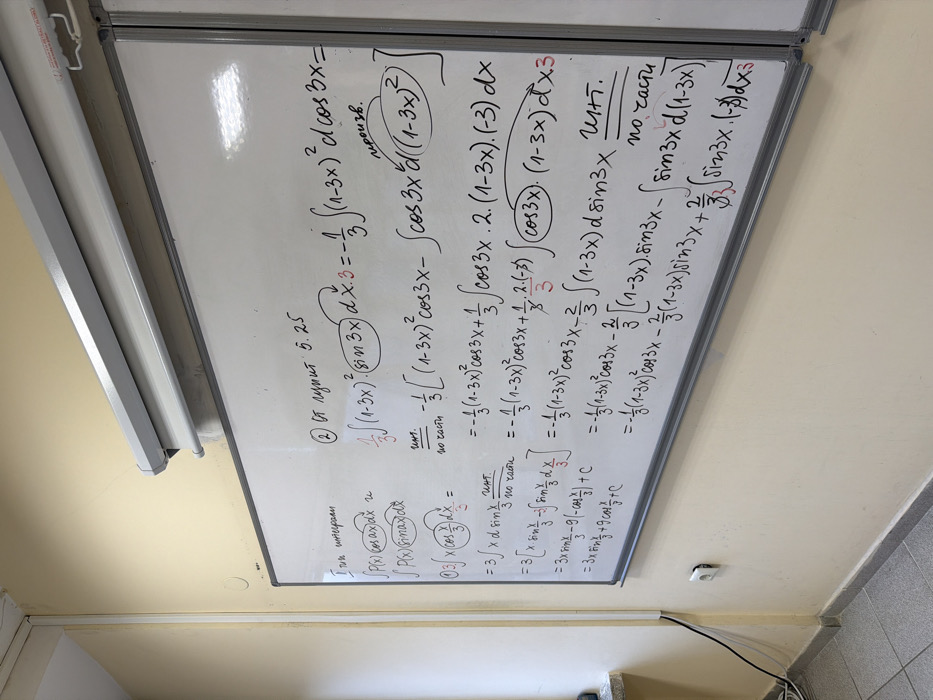 I тип интеграли
∫P(x)cosax dx и
∫P(x)sinax dx
① 3∫x cos x/3 dx/3 =
= 3∫x d sin x/3 инт. по части
= 3[x sin x/3 - 3∫sin x/3 dx/3]
= 3x sin x/3 - 9(-cos x/3) + C
= 3x sin x/3 + 9cos x/3 + C
② От пункт 5.25
1/3 ∫(1-3x)².sin3x dx.3 = -1/3 ∫(1-3x)² d cos3x =
произв.
инт. по части -1/3 [(1-3x)² cos3x - ∫cos3x d((1-3x)²)]
= -1/3 (1-3x)² cos3x + 1/3 ∫cos3x.2.(1-3x).(-3)dx
= -1/3 (1-3x)² cos3x + 1/3 . 2.(-3)/3 ∫cos3x.(1-3x) dx 3
= -1/3 (1-3x)² cos3x - 2/3 ∫(1-3x) d sin3x инт. по части
= -1/3 (1-3x)² cos3x - 2/3 [(1-3x).sin3x - ∫sin3x d(1-3x)]
= -1/3 (1-3x)² cos3x - 2/3 (1-3x)sin3x + 2/3.3 ∫sin3x.(-3)dx3